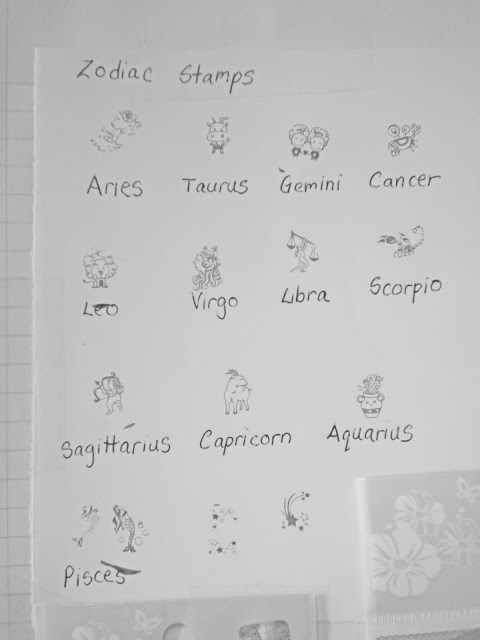 Zodiac Stamps
Aries Taurus Gemini Cancer
Leo Virgo Libra Scorpio
Sagittarius Capricorn Aquarius
Pisces